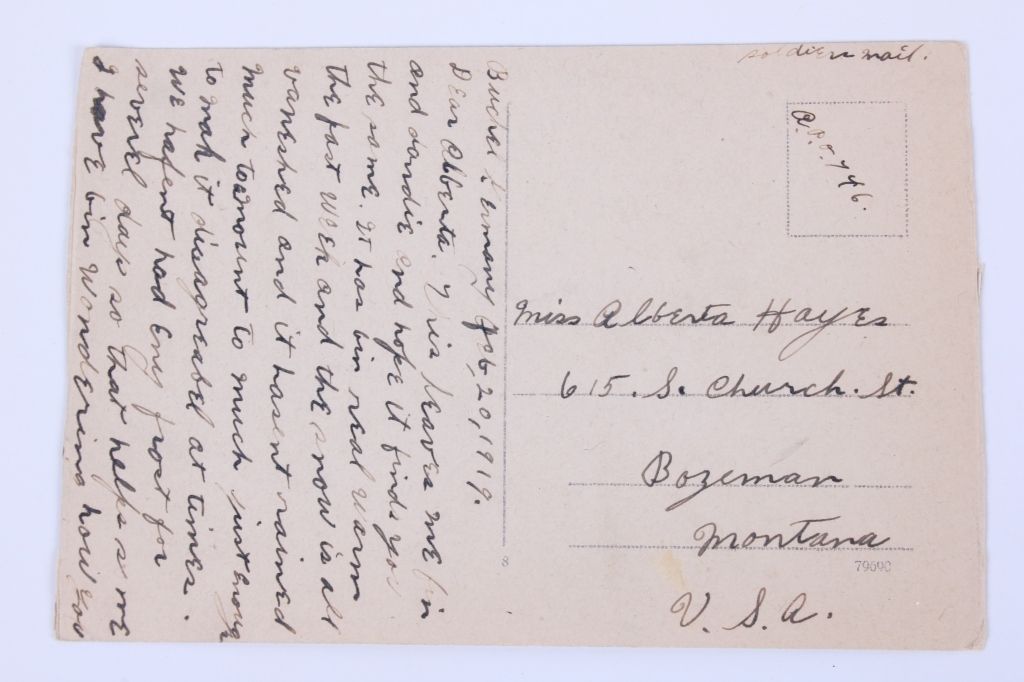 soldiers mail.
A.P.O. 746.
Miss Alberta Hayes
615. S. Church. St.
Bozeman
Montana
79690
U. S. A.
Buchel Germany Feb, 20, 1919.
Dear Alberta. This leaves me fin
and dandie and hope it finds you
the same. It has bin real warm
the past Wek and the snow is all
vaneshed and it hasent rained
much to amount to much just enoug
to mak it disagreabel at times.
We hafent had eny frost for
severel days so that helps some
I have bin Wondering how you